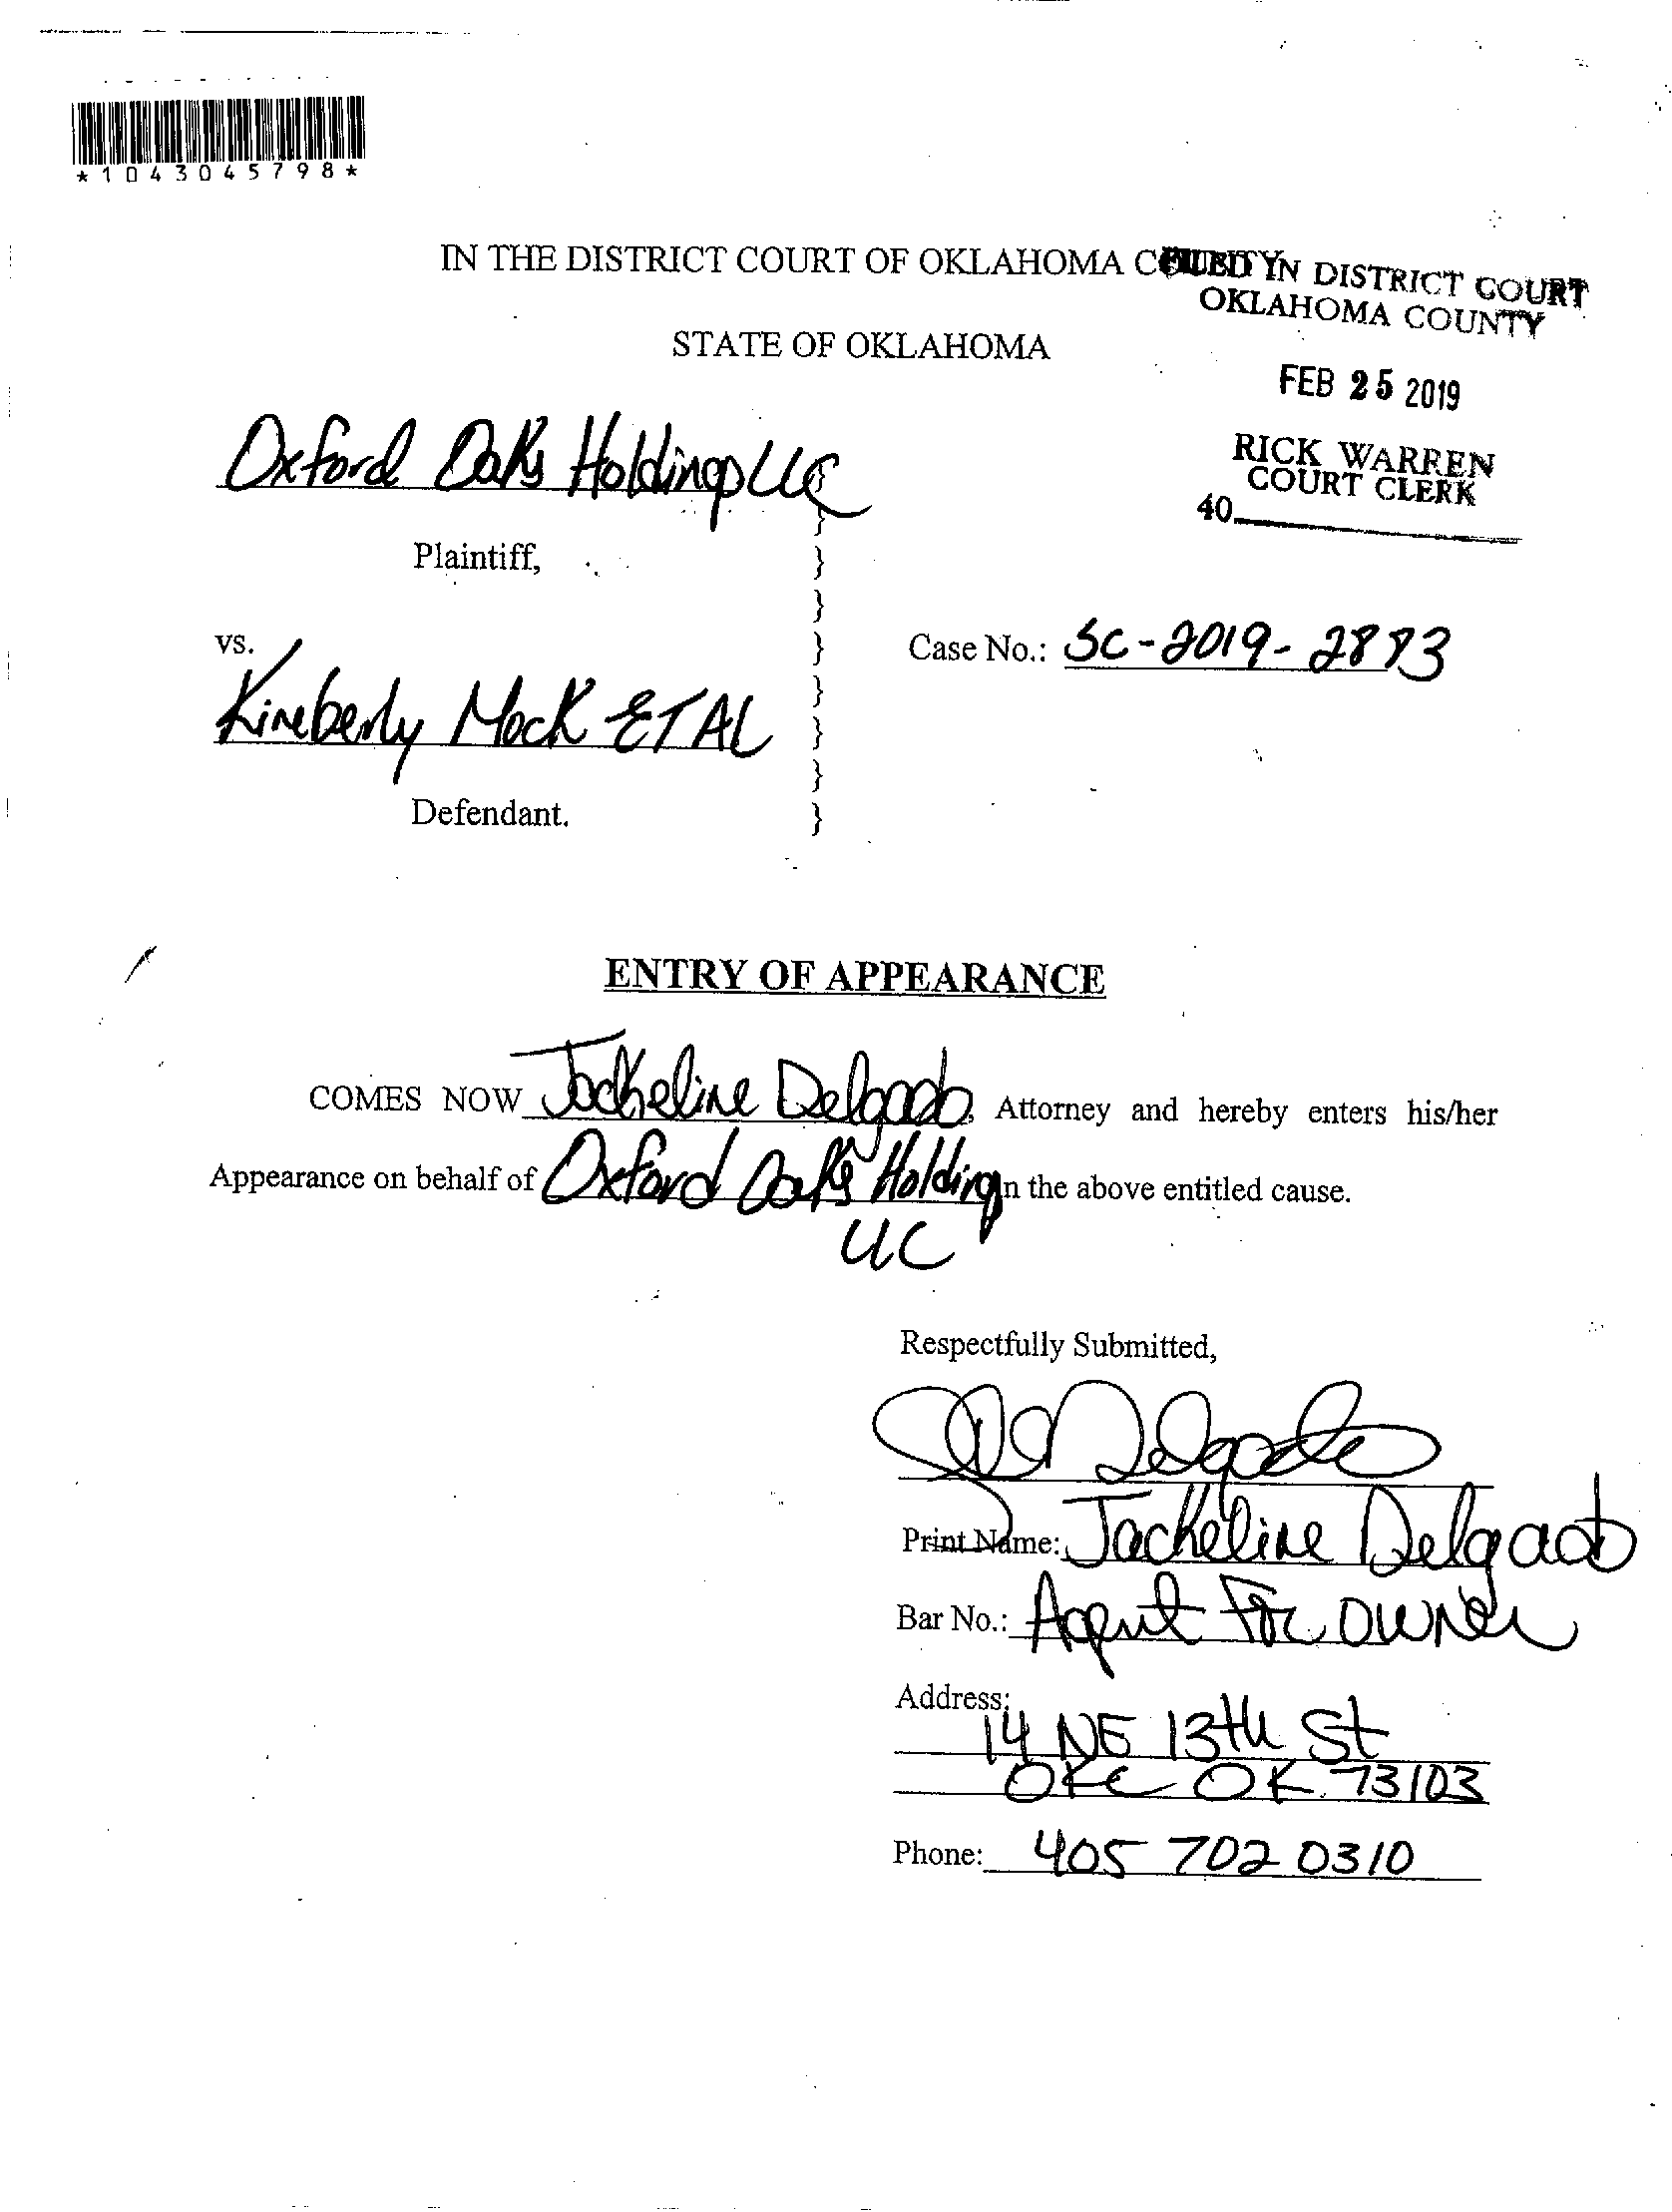 *1043045798*
IN THE DISTRICT COURT OF OKLAHOMA COUNTY
FILED IN DISTRICT COURT
OKLAHOMA COUNTY
STATE OF OKLAHOMA
FEB 25 2019
RICK WARREN
COURT CLERK
40
Oxford Oaks Holdings LLC
Plaintiff,
vs.
Case No.: SC-2019-2883
Kimberly Mock ET AL
Defendant.
ENTRY OF APPEARANCE
COMES NOW Jackeline Delgado, Attorney and hereby enters his/her
Appearance on behalf of Oxford Oaks Holding in the above entitled cause.
LLC
Respectfully Submitted,
Print Name: Jackeline Delgado
Bar No.: Agent For Owner
Address:
14 NE 13th St
OKC OK 73103
Phone: 405 702 0310